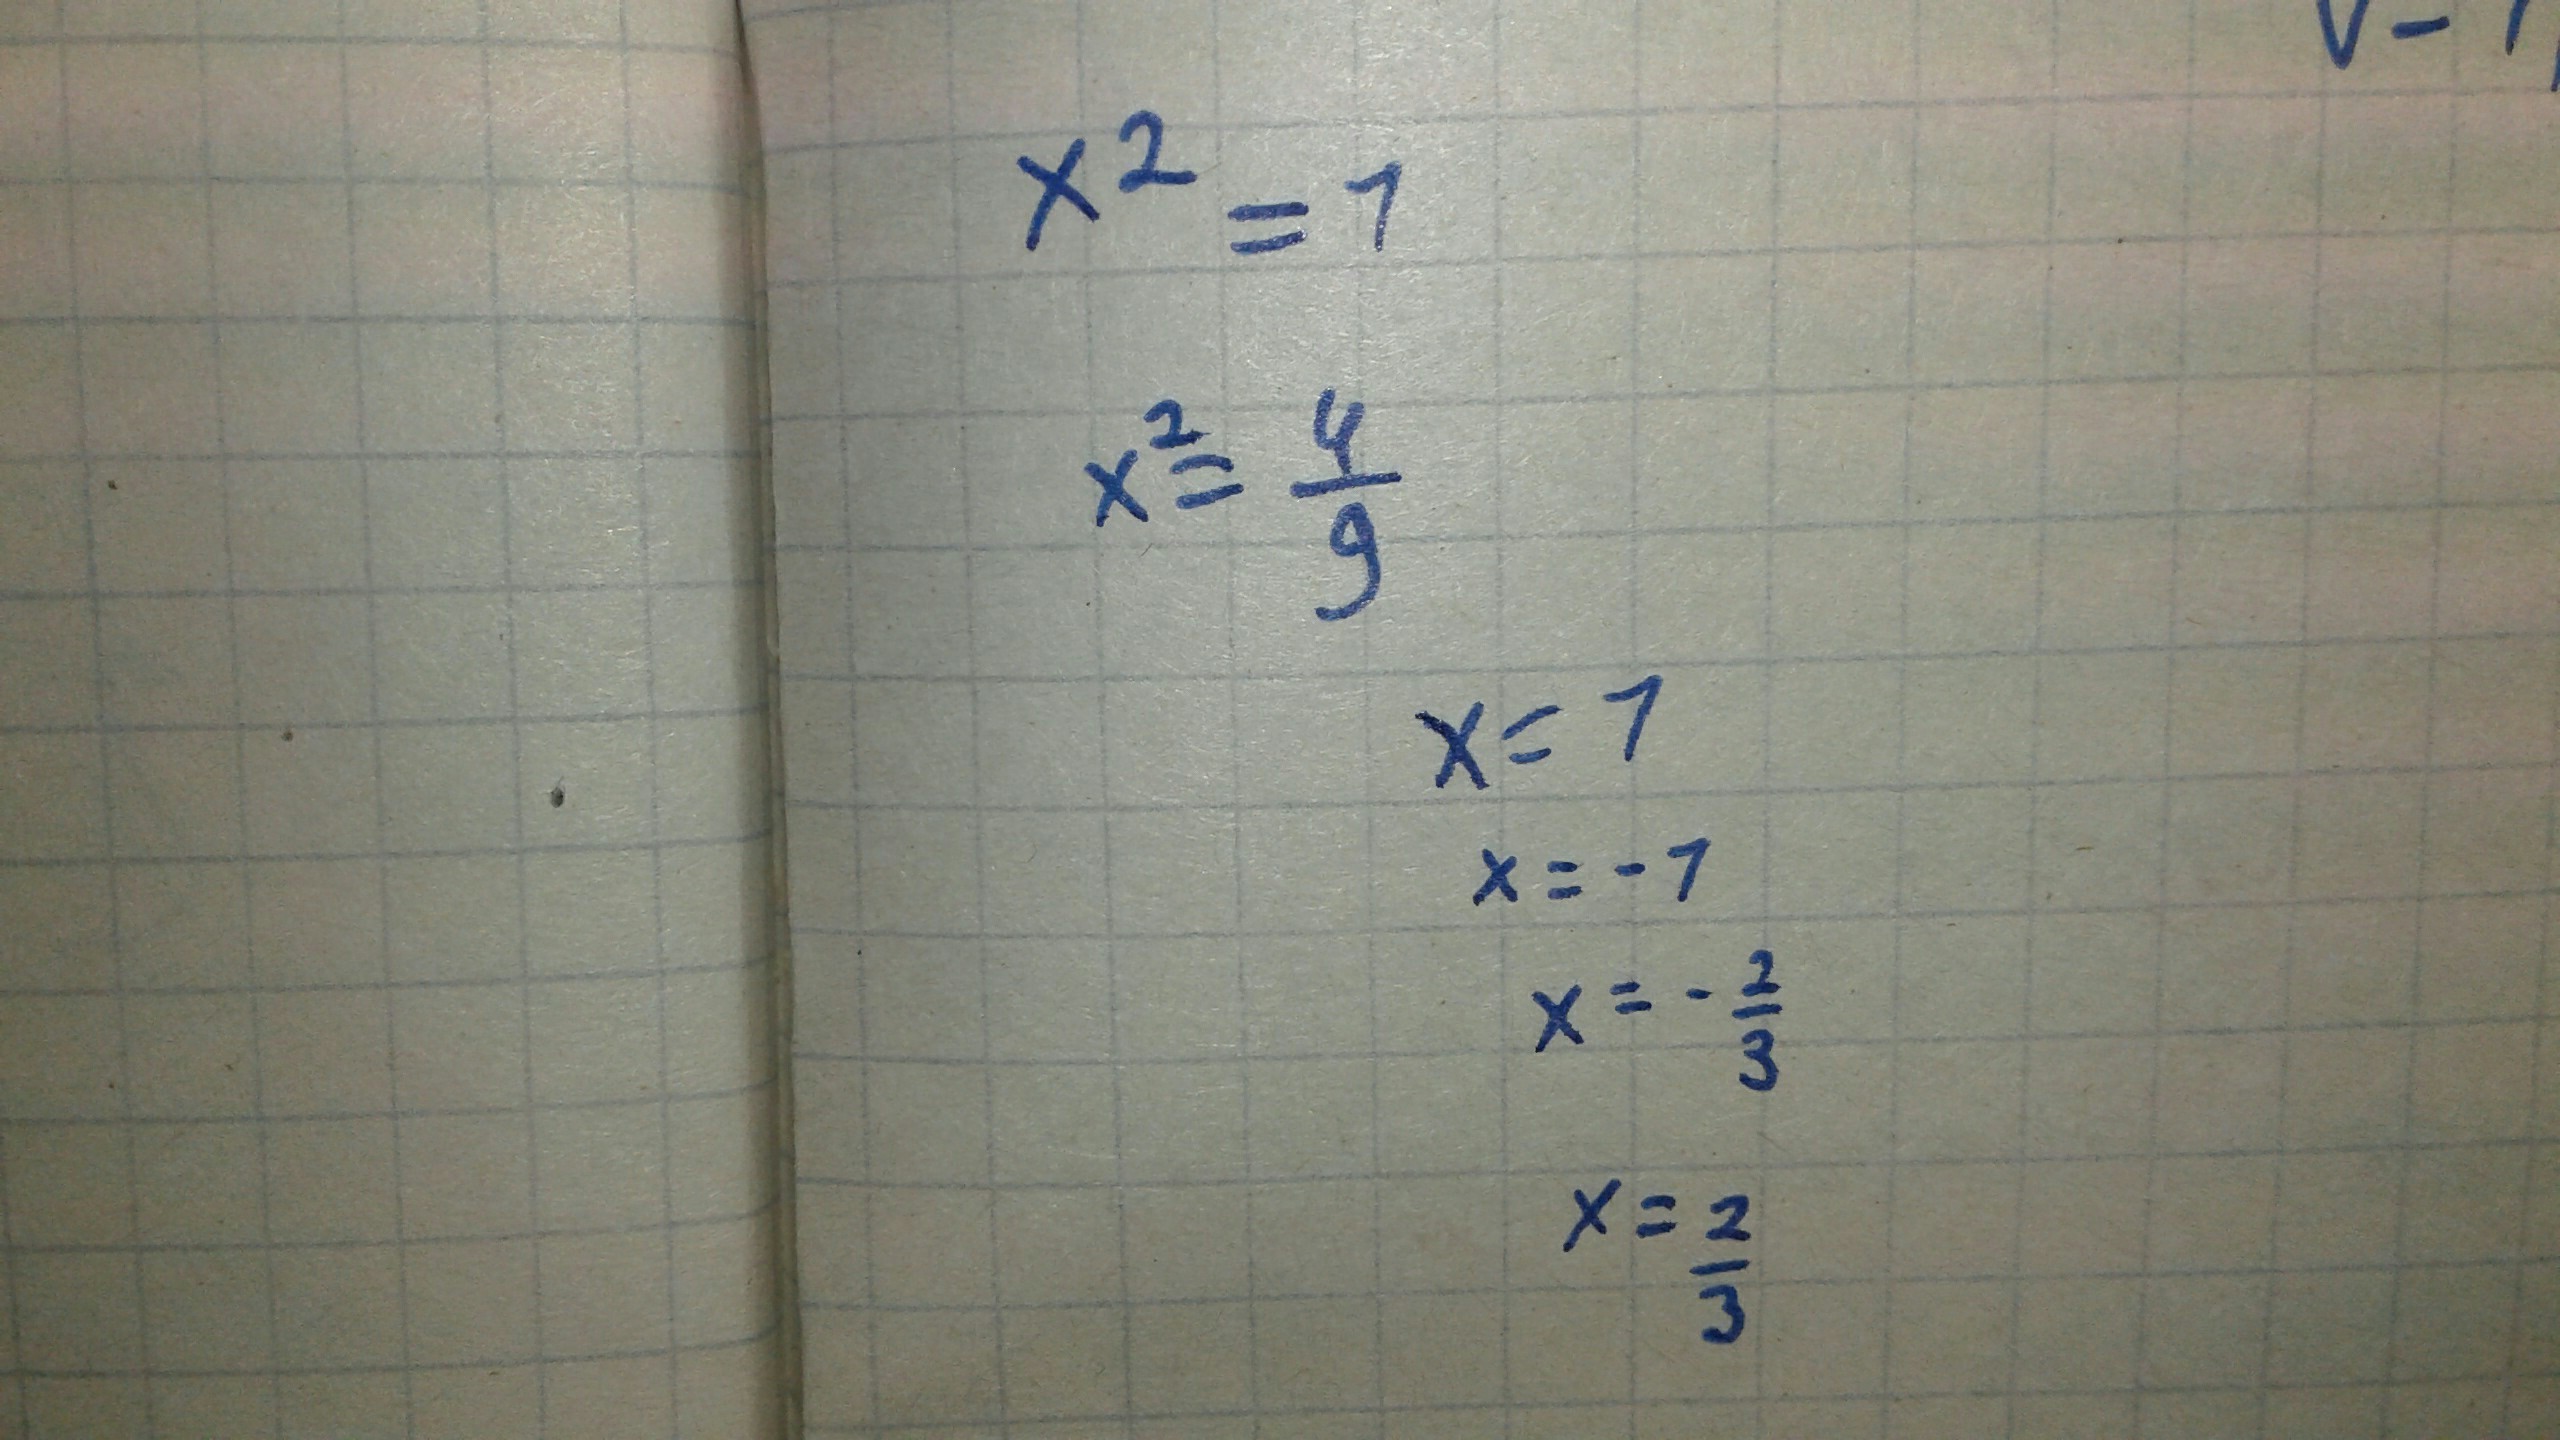 x² = 1
x² = 4/9
x = 1
x = -1
x = - 2/3
x = 2/3